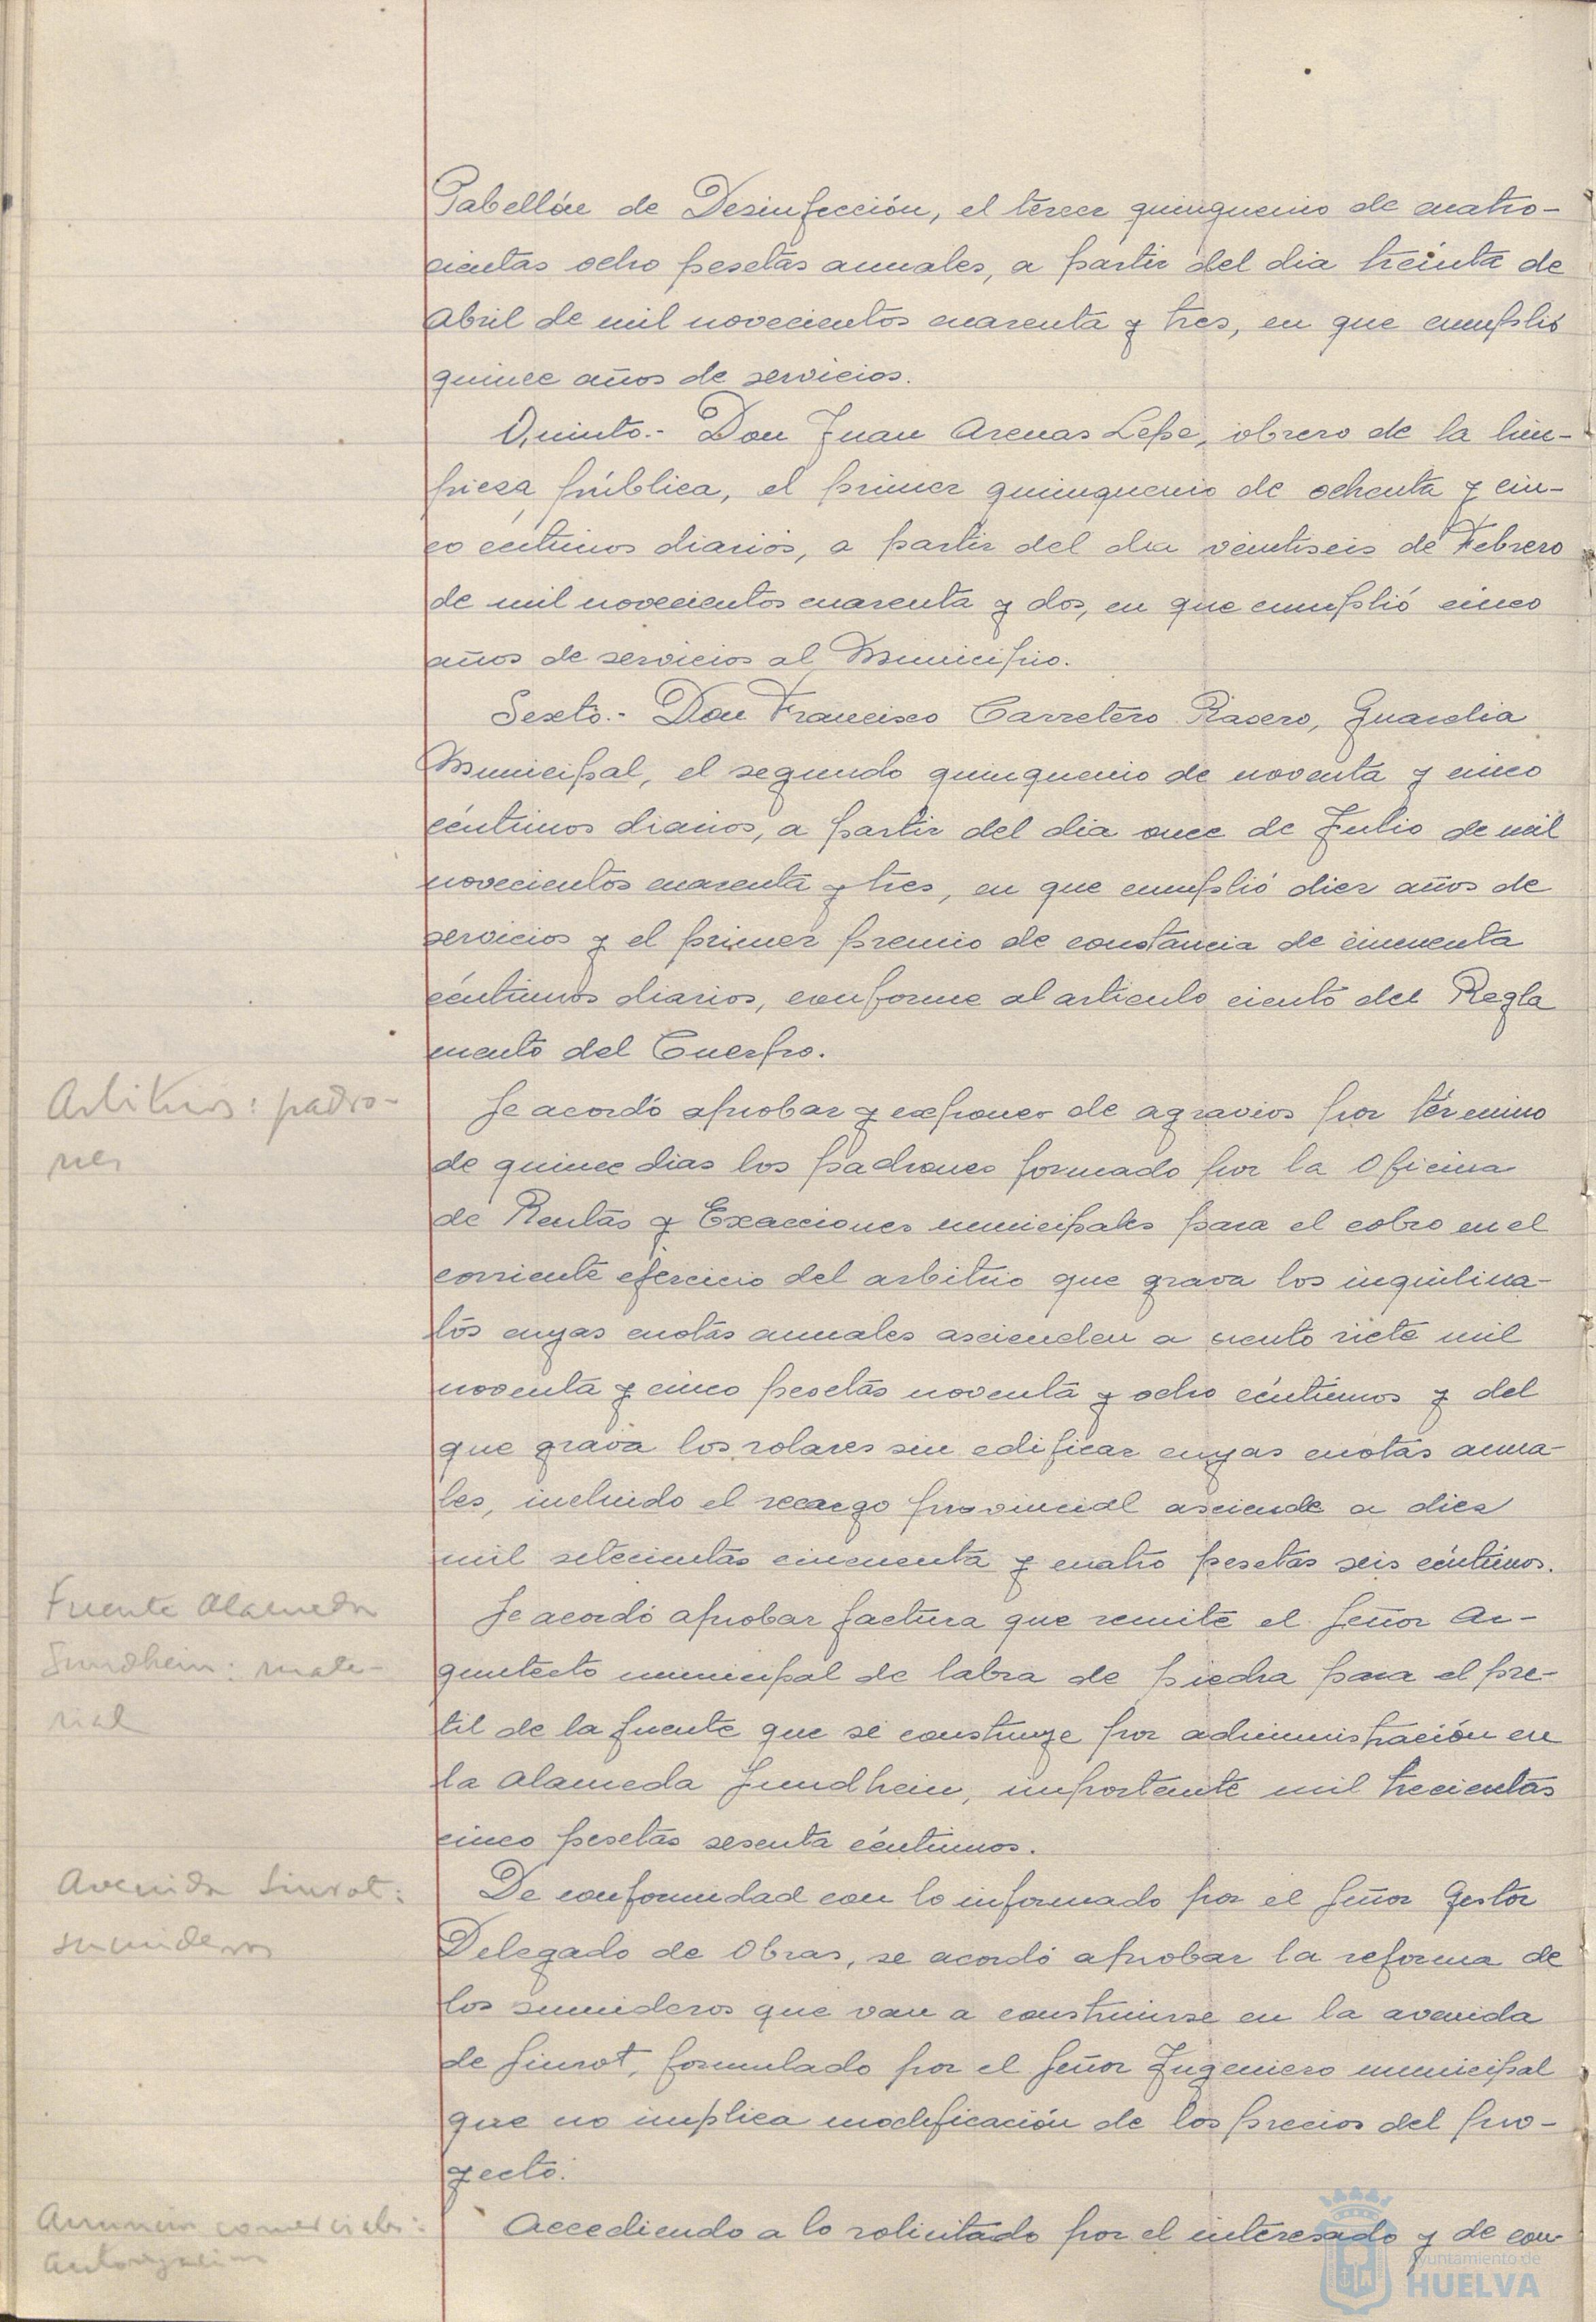 Pabellón de Desinfección, el tercer quinquenio de cuatro-
cientas ocho pesetas anuales, a partir del dia treinta de
Abril de mil novecientos cuarenta y tres, en que cumplió
quince años de servicios.
Quinto.- Don Juan Arenas Lepe, obrero de la lim-
pieza pública, el primer quinquenio de ochenta y cin-
co céntimos diarios, a partir del dia veintiseis de Febrero
de mil novecientos cuarenta y dos, en que cumplió cinco
años de servicios al Municipio.
Sexto.- Don Francisco Carretero Rasero, Guardia
Municipal, el segundo quinquenio de noventa y cinco
céntimos diarios, a partir del dia once de Julio de mil
novecientos cuarenta y tres, en que cumplió diez años de
servicios y el primer premio de constancia de cincuenta
céntimos diarios, conforme al articulo ciento del Regla
mento del Cuerpo.
Arbitrios: padro-
nes
Se acordó aprobar y exponer de agravios por término
de quince dias los padrones formado por la Oficina
de Rentas y Exacciones municipales para el cobro en el
corriente ejercicio del arbitrio que grava los inquilina-
tos cuyas cuotas anuales ascienden a ciento siete mil
noventa y cinco pesetas noventa y ocho céntimos y del
que grava los solares sin edificar cuyas cuotas anua-
les, incluido el recargo provincial asciende a diez
mil setecientas cincuenta y cuatro pesetas seis céntimos.
Fuente Alameda
Sundhein: mate-
rial
Se acordó aprobar factura que remite el Señor Ar-
quitecto municipal de labra de piedra para el pre-
til de la fuente que se construye por administración en
la Alameda Sundhein, importante mil trecientas
cinco pesetas sesenta céntimos.
Avenida Siurot:
sumideros
De conformidad con lo informado por el Señor Gestor
Delegado de Obras, se acordó aprobar la reforma de
los sumideros que van a construirse en la avenida
de Siurot, formulado por el Señor Ingeniero municipal
que no implica modificación de los precios del pro-
yecto.
Anuncios comerciales:
Autorización
Accediendo a lo solicitado por el interesado y de con
Ayuntamiento de
HUELVA